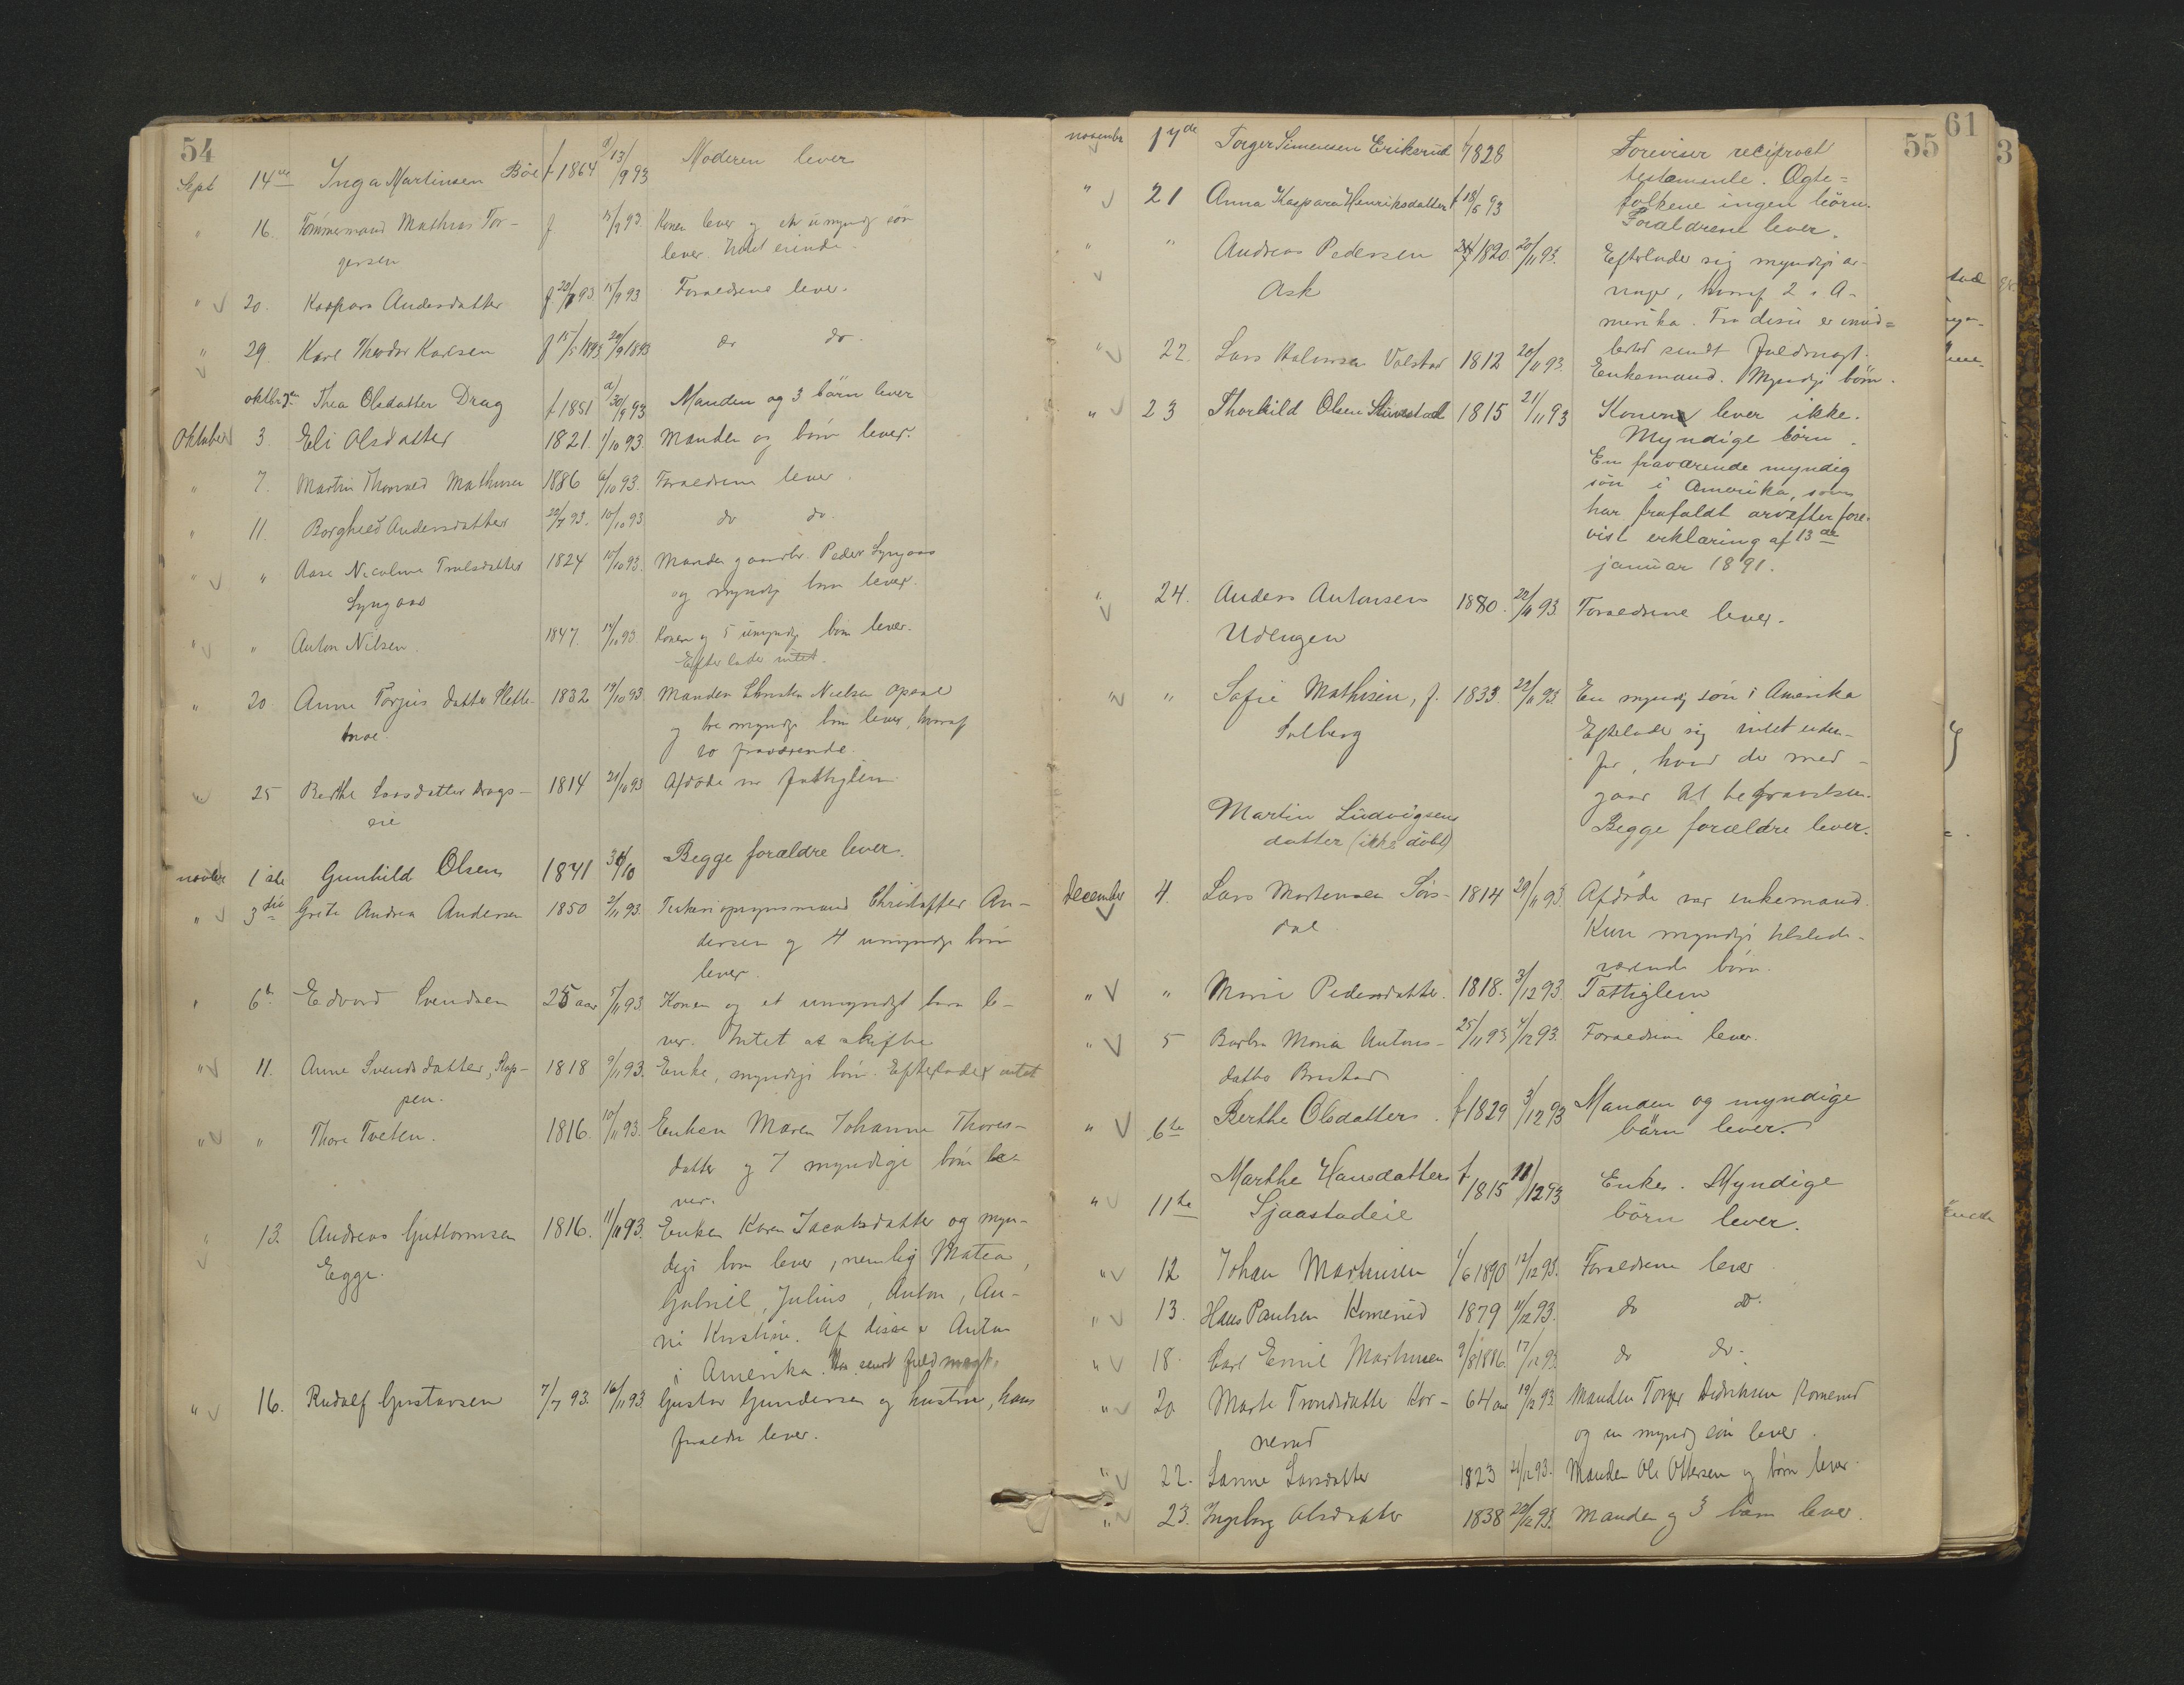 54
Sept 14de Inga Martinsen Böe f 1864 d/13/9 93 Moderen lever
" 16. Tömmermand Mathias Tor- f 15/9 93. Konen lever og en umyndig sön
gersen lever. Intet eiende.
" 20. Kaspara Andersdatter f. 20/7 93 15/9 93 Foraeldrene lever.
" 29. Karl Theodor Karlsen f 15/5 1893 29/9 1893 do do.
oktbr 2den Thea Olsdatter Drag f 1851 d/30/9 93 Manden og 3 börn lever
Oktober 3. Eli Olsdatter 1821. 1/10 93 Manden og börn lever.
" 7. Martin Thorvald Mathisen 1886 6/10 93. Foraeldrene lever.
" 11. Borghild Andersdatter 22/7 93. 10/10 93 do do.
" " Aase Nicoline Trulsdatter 1824 10/10 93. Manden gaardbr. Peder Lyngaas
Lyngaas og myndig börn lever.
" " Anton Nilsen. 1847. 14/10 93 Konen og 5 umyndig börn lever.
Efterlader intet.
" 20. Anne Torjus datter Slette- 1832 19/10 93. Manden Christen Nielsen
moe. og tre myndige börn lever, hvoraf
to fraværende.
25 Berthe Larsdatter Drags- 1814 21/10 93 Afdöde var fattiglem.
eie
novbr 1ste Gunhild Olsen 1841 30/10 Begge forældre lever.
" 3die Grete Andrea Andersen 1850 2/11 93. Christoffer An-
dersen og 4 umyndige börn
lever.
" 6te Edvard Svendsen 25 aar 5/11 93. Konen og et umyndigt barn le-
ver. Intet at skifte
" 11. Anne Svendsdatter, Kop- 1818 9/11 93. Enke, myndige börn. Efterlader intet
pen.
" " Thore Tveten. 1816. 10/11 93. Enken Maren Johanne Thores-
datter og 7 myndige börn le-
ver.
" 13. Andreas Guttormsen 1816. 11/11 93. Enken Karen Jacobsdatter og myn-
Egge. dige börn lever, nemlig Matea,
Gabriel, Julius, Anton, An-
ne Kristine. Af disse er Anton
i Amerika. Har sendt fuldmagt.
" 16. Rudolf Gustavsen 7/7 93. 16/11 93. Gustav Gundersen og hustru, hans
foraeldre lever.
55
november 17de Torger Simensen Eriksrud f 1828 Foreviser reciproct
testamente. Ægte=
folkene ingen börn.
" 21 Anna Kaspara Henriksdatter f 18/5 93 Forældrene lever.
" " Andreas Pedersen 24/7 1820. 20/11 93. Efterlader sig myndige ar-
Ask vinger, hvoraf 2 i A-
merika. Fra disse er imid=
lertid sendt fuldmagt.
" 22. Lars Halvorsen Volstad 1812 20/11 93. Enkemand. Myndige börn.
" 23 Thorkild Olsen 1815 21/11 93 Konen lever ikke.
Myndige börn.
En fraværende myndig
sön i Amerika, som
har frafaldt arv efter fore-
vist erklæring af 13de
januar 1891.
" 24. Anders Antonsen 1880. 22/11 93. Foraeldrene lever.
Udengen
" " Sofie Mathisen, f. 1833. 22/11 93 En myndig sön i Amerika
Solberg Efterlader sig intet uden-
for, hvad der med-
gaar til begravelsen.
Martin Ludvigsens Begge forældre lever.
datter (ikke döbt)
December 4. Lars Mortensen Sörs- 1814 29/11 93. Afdöde var enkemand.
dal Kun myndige tilstede-
værende börn.
" " Marie Pedersdatter. 1818. 3/12 93. Fattiglem
" 5 Barbra Maria Antons- 25/11 93 4/12 93. Foraeldrene lever.
datter
" 6te Berthe Olsdatter. f 1829 3/12 93 Manden og myndige
börn lever.
" 11te Marthe Hansdatter f 1815 11/12 93 Enke. Myndige
Sjaastadeie börn lever.
" 12 Johan Martinsen 1/6 1890 12/12 93. Foraeldrene lever
" 13. Hans Paulsen Komnerud 1879 11/12 93. do do.
" 18. Carl Emil Martinsen 9/8 1886. 17/12 93 do do.
" 20 Marte Trondsdatter Kor- 64 aar 19/12 93 Manden Torger Didriksen Komnerud
nerud og en myndig sön lever.
" 22. Sanne Larsdatter 1823 21/12 93. Manden Ole Ottersen og börn lever.
" 23. Ingeborg Olsdatter 1838 22/12 93. Manden og 3 börn lever.
61
3